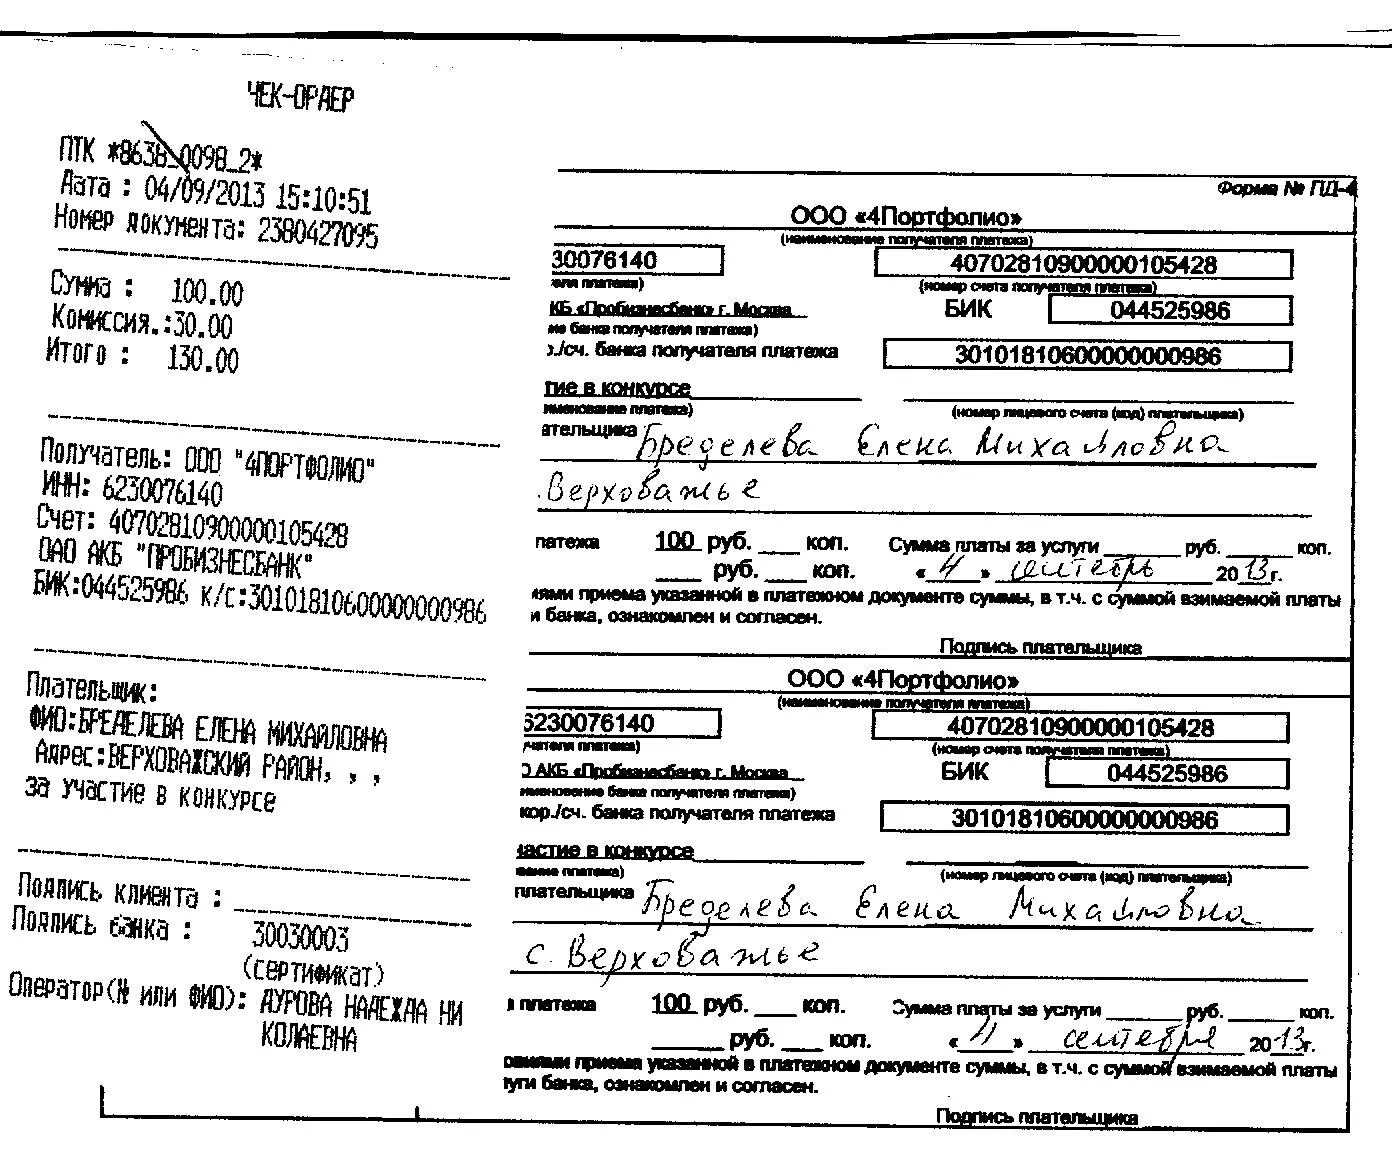 ЧЕК-ОРДЕР
ПТК *8638_0098_2*
Дата : 04/09/2013 15:10:51
Номер документа: 2380427095
Сумма : 100.00
Комиссия.:30.00
Итого : 130.00
Получатель: ООО "4ПОРТФОЛИО"
ИНН: 6230076140
Счет: 40702810900000105428
ОАО АКБ "ПРОБИЗНЕСБАНК"
БИК:044525986 К/С:30101810600000000986
Плательщик:
ФИО:БРЕДЕЛЕВА ЕЛЕНА МИХАЙЛОВНА
Адрес:ВЕРХОВАЖСКИЙ РАЙОН, , ,
за участие в конкурсе
Подпись клиента :
Подпись банка : 30030003
(сертификат)
Оператор(№ или ФИО): ДУРОВА НАДЕЖДА НИ
КОЛАЕВНА
Форма № ПД-4
ООО «4Портфолио»
(наименование получателя платежа)
30076140 40702810900000105428
еля платежа) (номер счета получателя платежа)
КБ «Пробизнесбанк» г. Москва БИК 044525986
ие банка получателя платежа)
р./сч. банка получателя платежа 30101810600000000986
тие в конкурсе
именование платежа) (номер лицевого счета (код) плательщика)
ательщика Бределева Елена Михайловна
.Верховажье
латежа 100 руб. ___ коп. Сумма платы за услуги ___ руб. ___ коп.
___ руб. ___ коп. «4» сентябрь 2013г.
иями приема указанной в платежном документе суммы, в т.ч. с суммой взимаемой платы
и банка, ознакомлен и согласен.
Подпись плательщика
ООО «4Портфолио»
(наименование получателя платежа)
6230076140 40702810900000105428
учателя платежа) (номер счета получателя платежа)
О АКБ «Пробизнесбанк» г. Москва БИК 044525986
именование банка получателя платежа)
кор./сч. банка получателя платежа 30101810600000000986
частие в конкурсе
вание платежа) (номер лицевого счета (код) плательщика)
плательщика Бределева Елена Михайловна
с. Верховажье
а платежа 100 руб. ___ коп. Сумма платы за услуги ___ руб. ___ коп.
___ руб. ___ коп. «4» сентября 2013г.
овиями приема указанной в платежном документе суммы, в т.ч. с суммой взимаемой платы
луги банка, ознакомлен и согласен.
Подпись плательщика